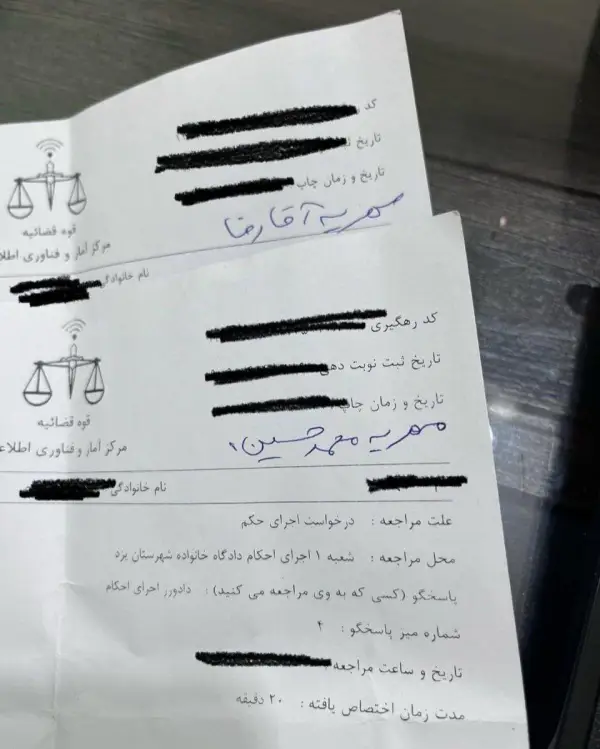 کد
تاریخ
تاریخ و زمان چاپ
مهریه آقا رضا
قوه قضائیه
مرکز آمار و فناوری اطلا
نام خانوادگی
کد رهگیری
تاریخ ثبت نوبت دهی
تاریخ و زمان چاپ
مهریه محمد حسین
قوه قضائیه
مرکز آمار و فناوری اطلاع
نام خانوادگی
علت مراجعه : درخواست اجرای حکم
محل مراجعه : شعبه ۱ اجرای احکام دادگاه خانواده شهرستان یزد
پاسخگو (کسی که به وی مراجعه می کنید) : دادورز اجرای احکام
شماره میز پاسخگو : ۴
تاریخ و ساعت مراجعه
مدت زمان اختصاص یافته : ۲۰ دقیقه